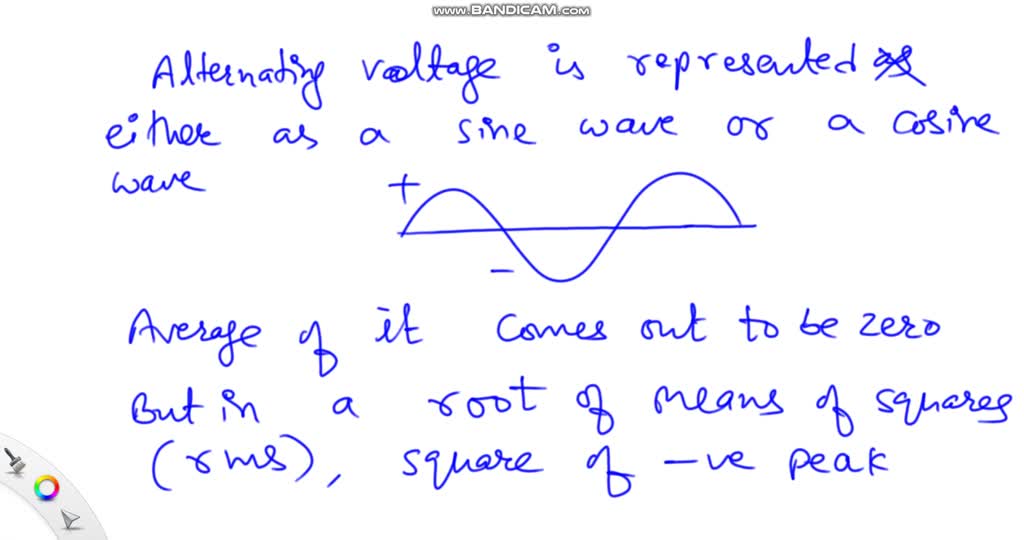 www.BANDICAM.com
Alternating voltage is represented
either as a sine wave or a cosine
wave
+
-
Average of it comes out to be zero
But in a root of means of squares
(rms), square of -ve peak